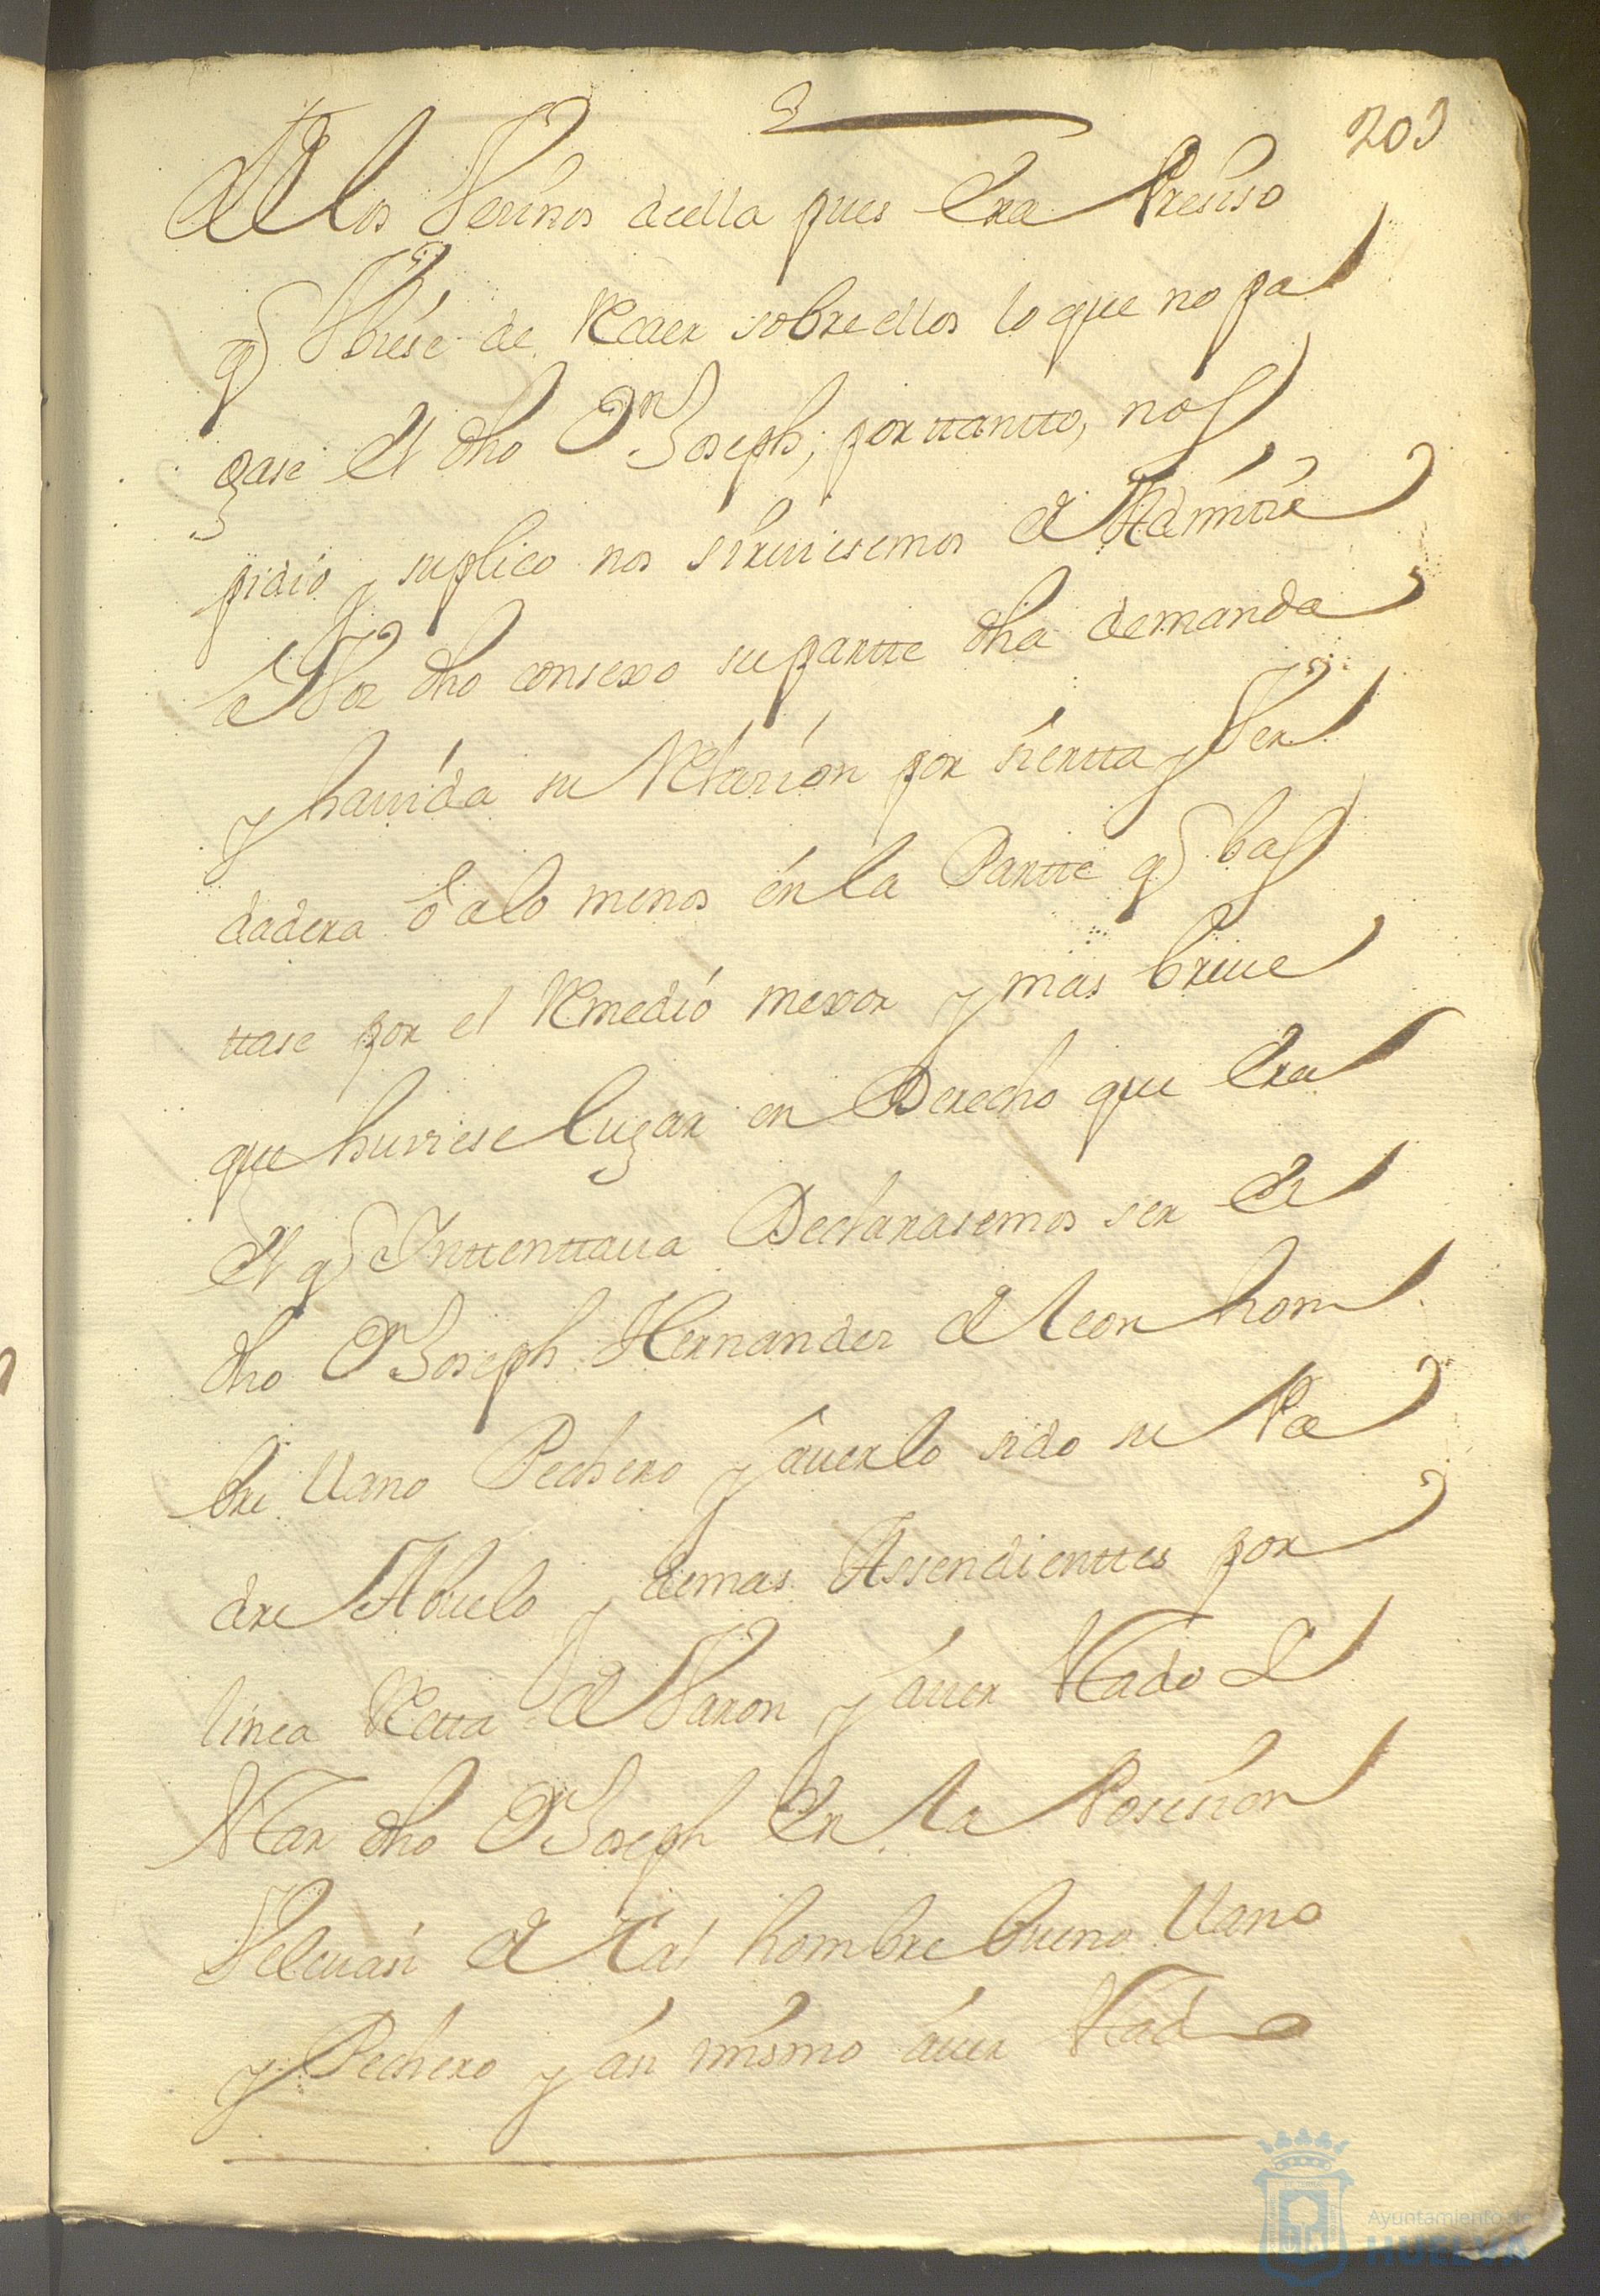 203
de los Vesinos deella pues Era Presiso
q Vbiese de Recaer sobre ellos lo que no pa
gase el dho Dn Joseph; por ttantto, nos
pidio y suplico nos sirviesemos de Admitir
a dho consexo su partte dha demanda
y hauida su Relazion por sientta y Ver
dadera ô a lo menos en la Partte q bas
ttase por el Remedio mexor y mas breue
que huviese lugar en Derecho que Era
el q Inttenttaua Declarasemos ser el
dho Dn Joseph Hernandez de Leon hom
bre llano Pechero y auerlo sido su Pa
dre Abuelo y demas Assendienttes por
linea Rectta de Varon y auer Estado
Estar dho Dn Joseph En la Posesion
Velcuasi de tal hombre bueno llano
y Pechero y asi mismo auer Estado
Ayuntamiento de
HUELVA